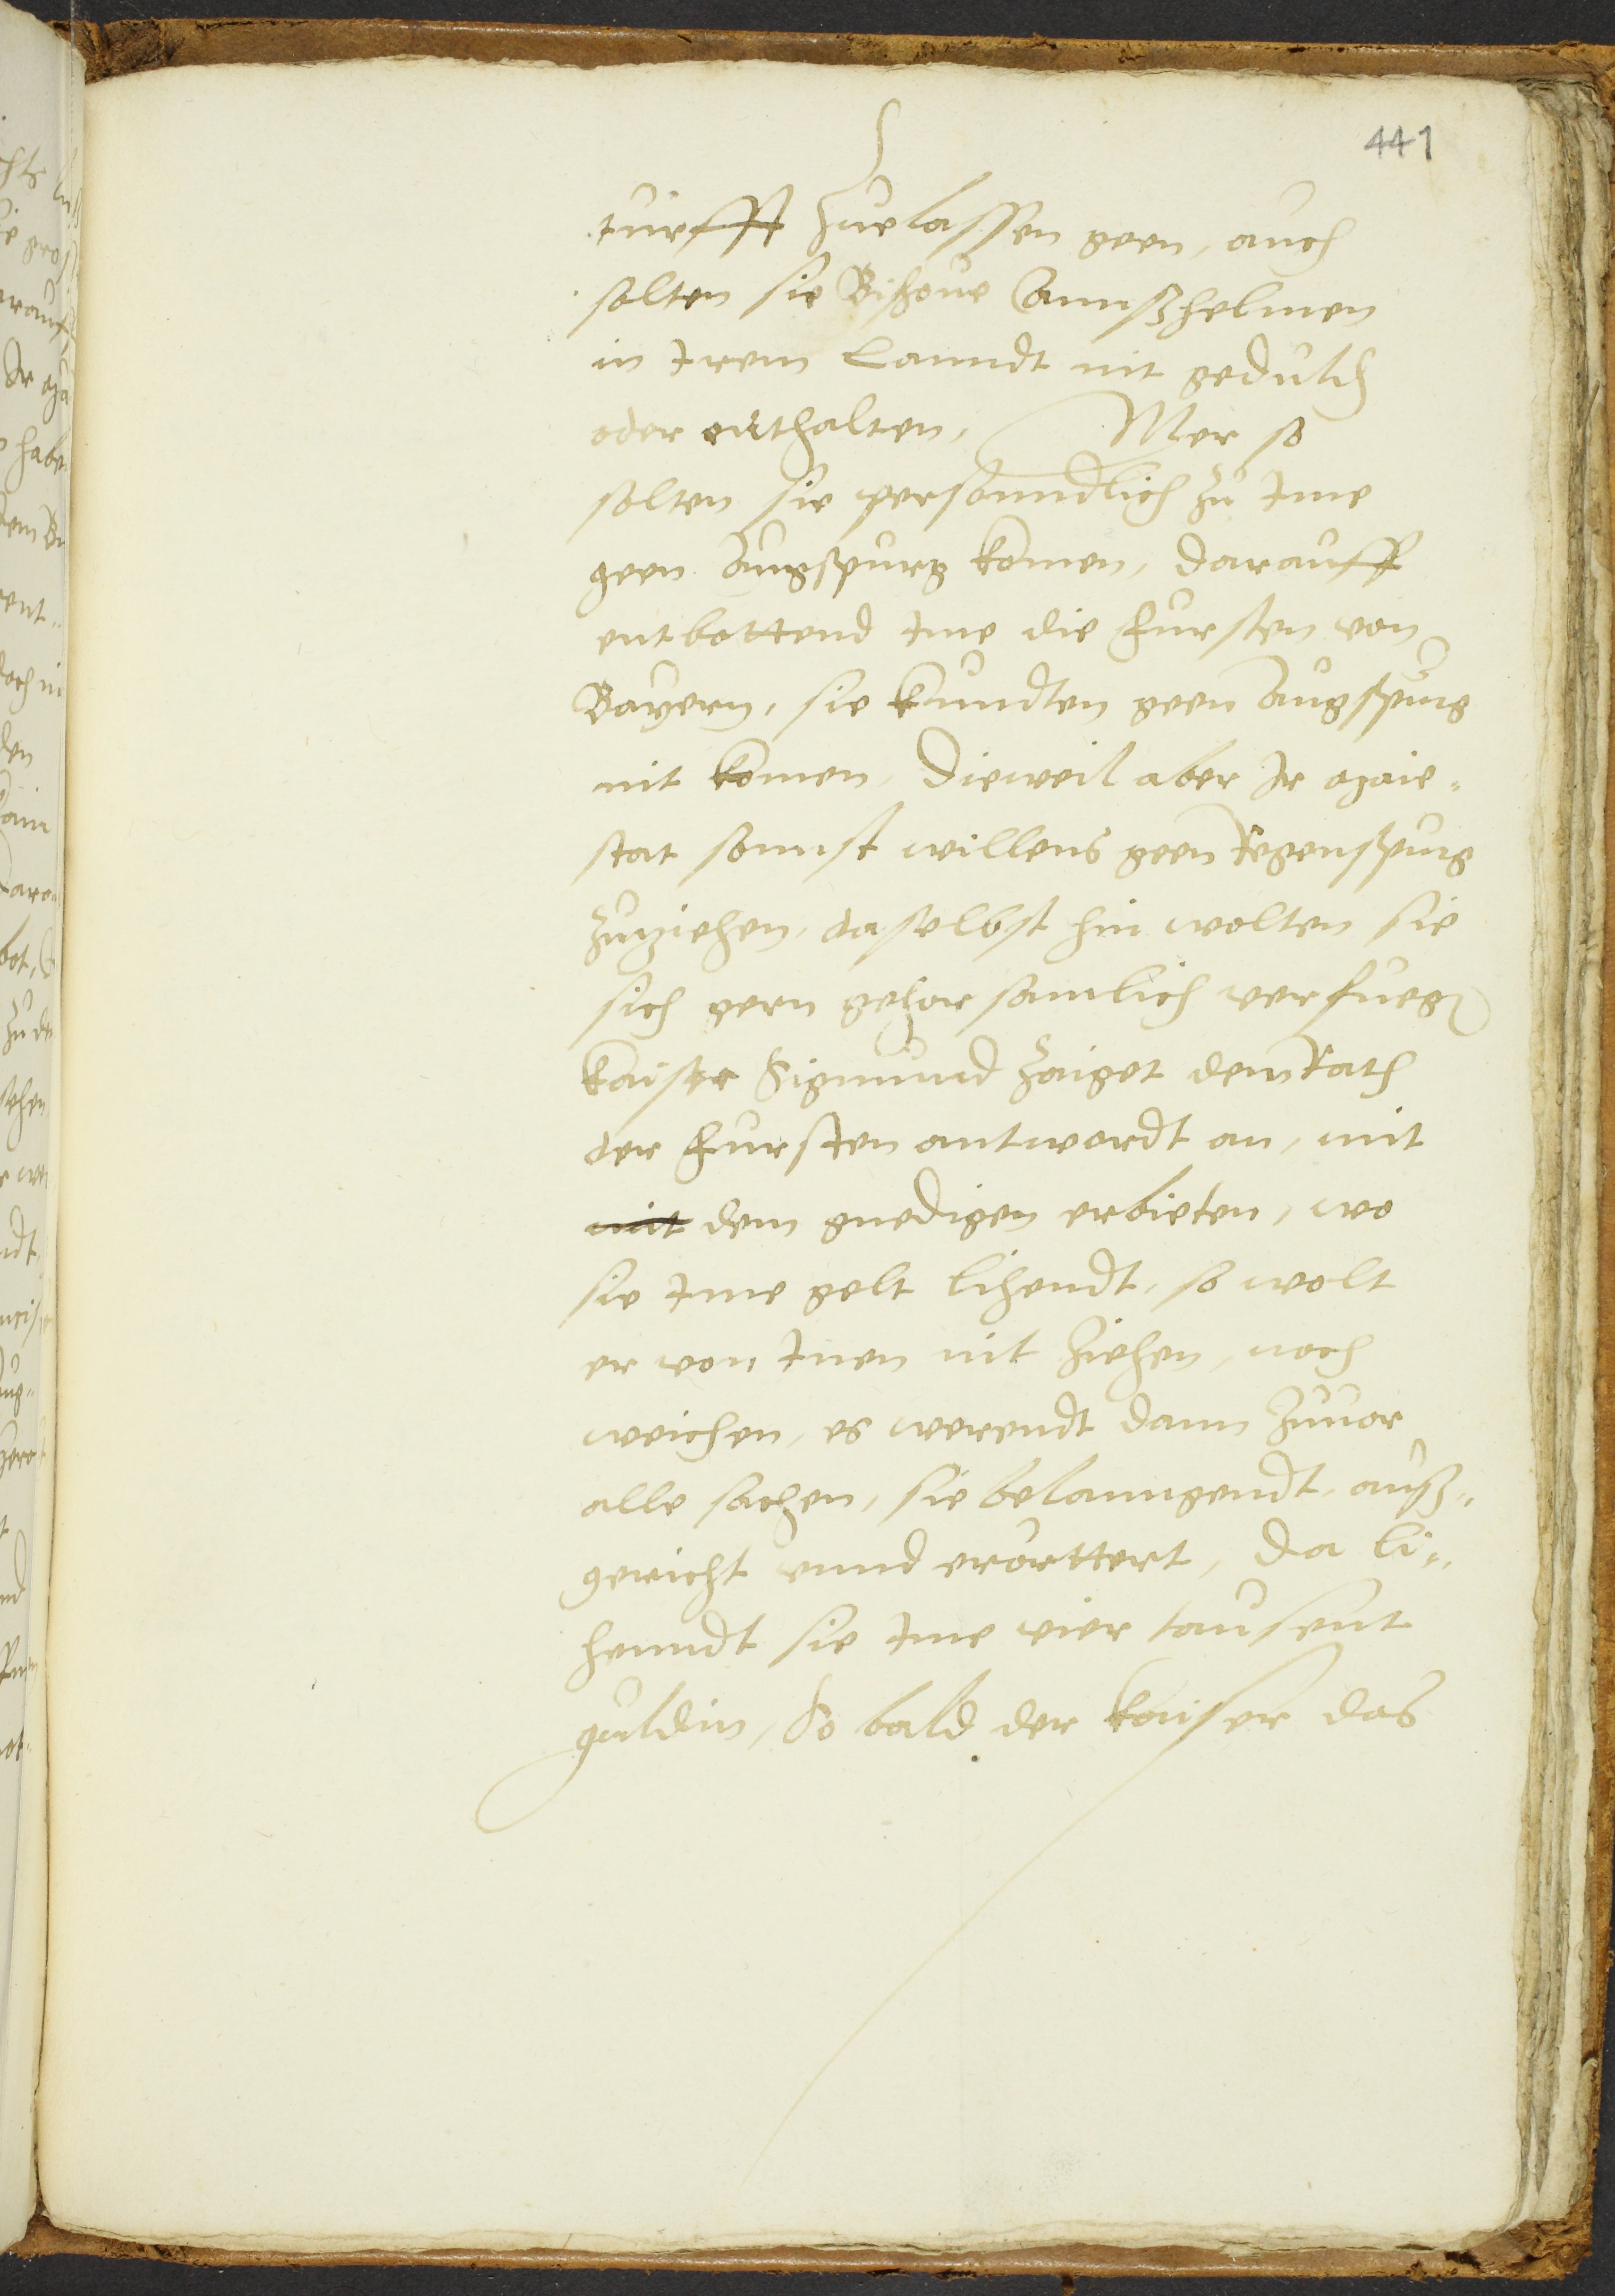 441
turfft Zue lassen geen, auch
solten sie Bischoue Annßhelmen
in Irem Lanndt nit geduld
oder enthalten, Mer so
solten sie personndlich zu Ime
geen Augspurg komen, darauff
entbottend Ime die Fursten von
Bayern, sie kundten geen Augspurg
nit komen, Dieweil aber Ir Maie„
stat sonnst willens geen Regenspurg
Zuziehen, daselbst hin wolten sie
sich gern gehorsamlich verfueg
Kaiser Sigmund Zaiget dem Rath
der Fursten antwordt an, mit
mit dem gnedigen erbieten, wo
sie Ime gelt lihendt, so wolt
er von Inen nit Ziehen, noch
weichen, es werendt dann Zuuor
alle sachen, sie belanngendt, auß„
gericht vnnd erörttert, Da li„
henndt sie Ime vier tausent
guldin, So bald der Kaiser das